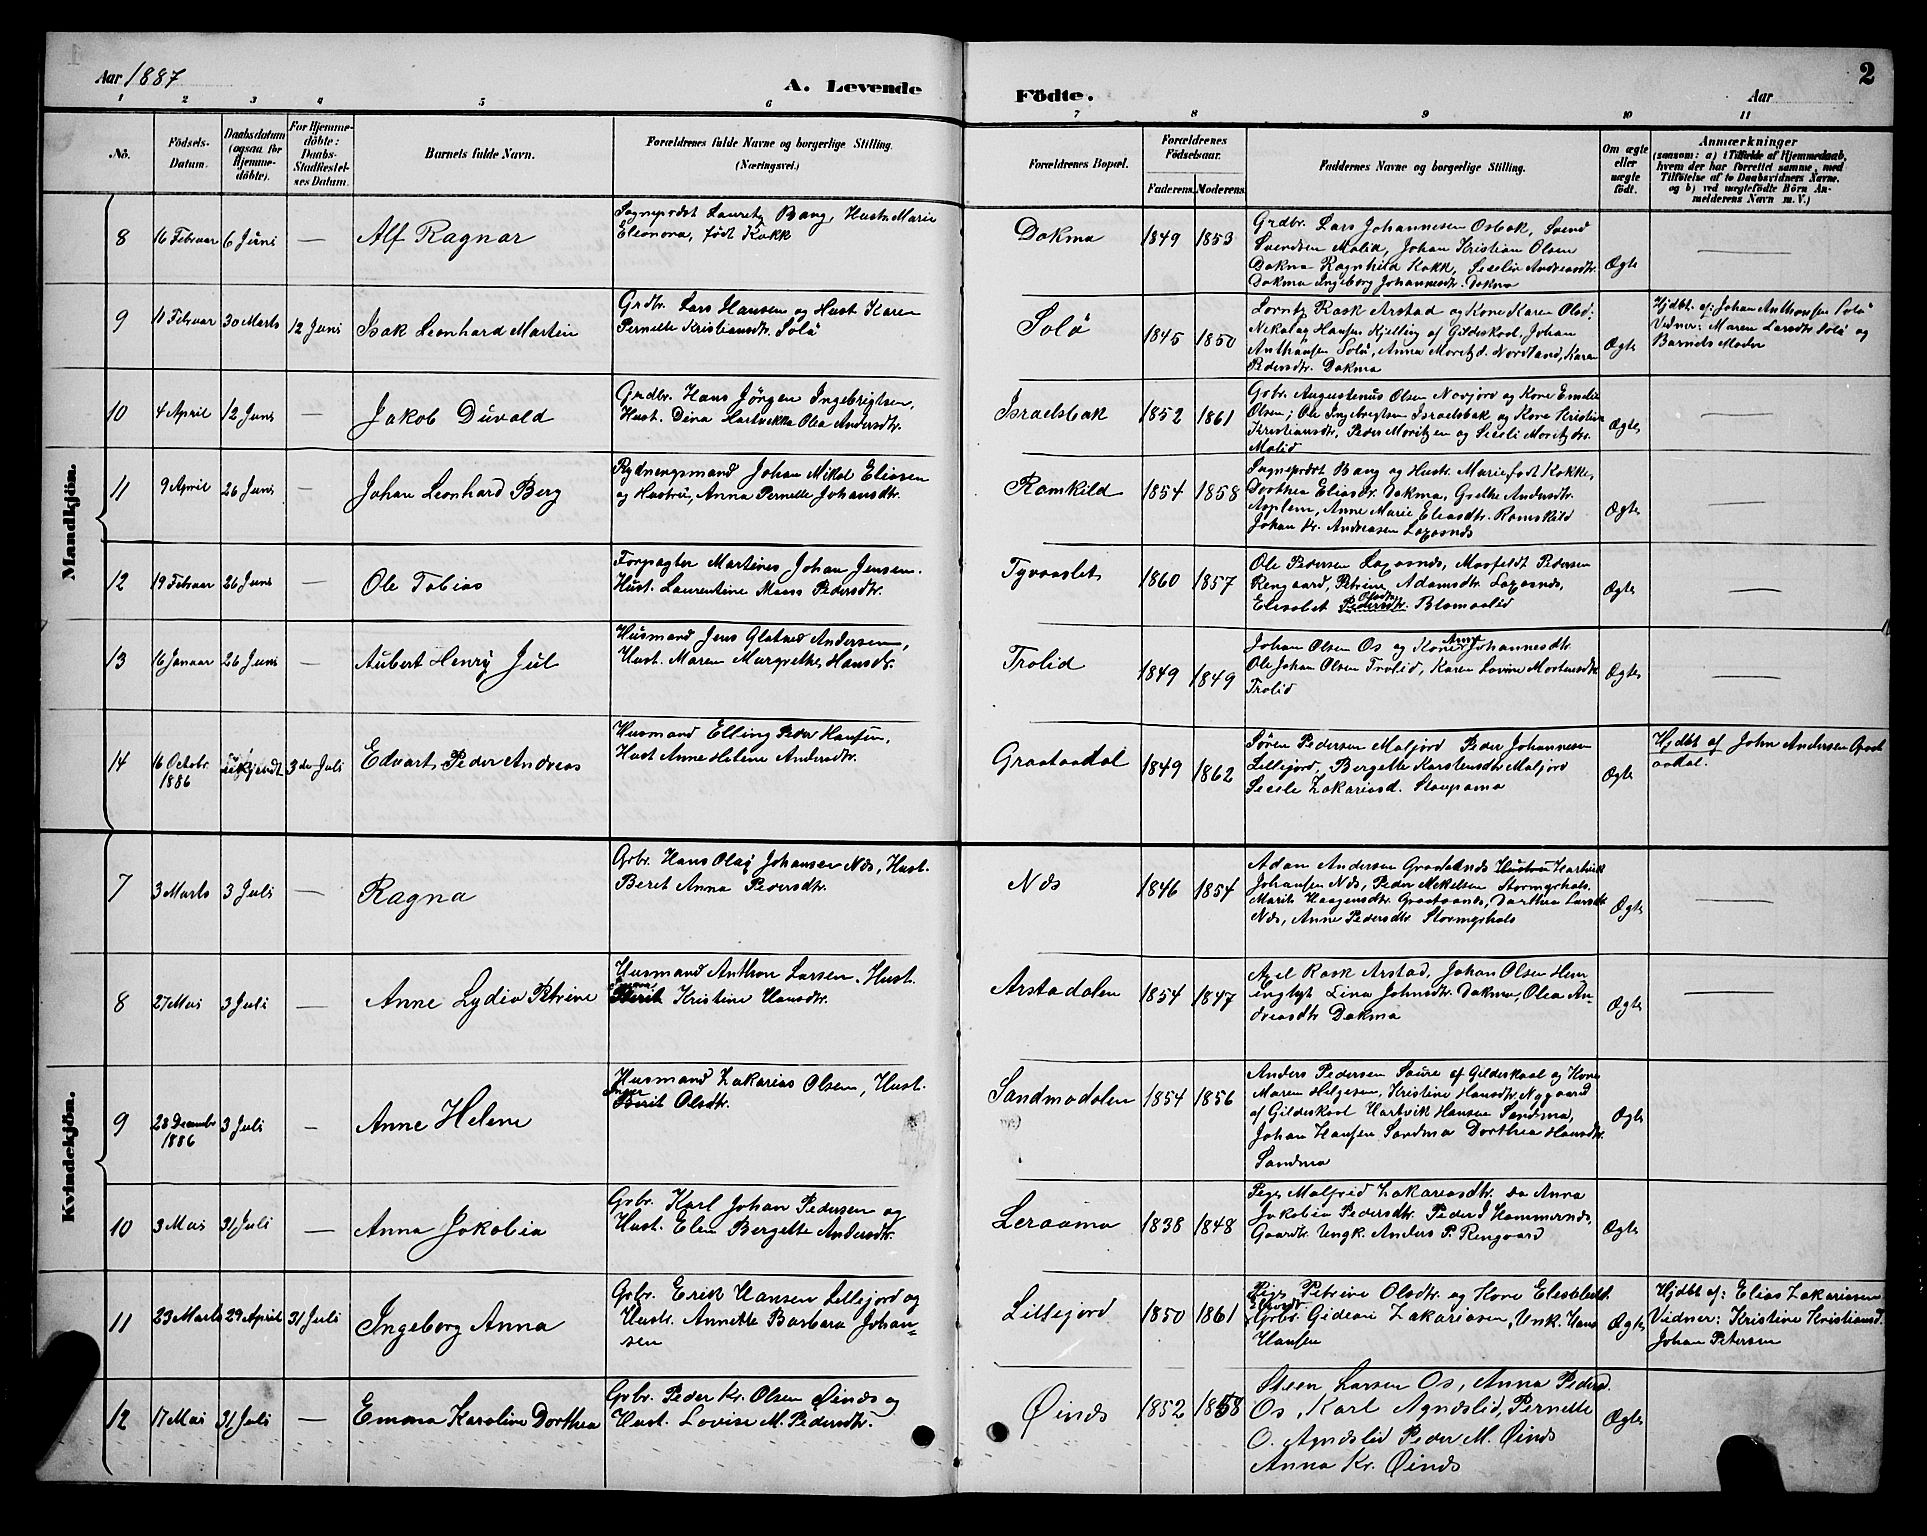 Aar 1887
A. Levende
Födte.
Aar
2
1 2 3 4 5 6 7 8 9 10 11
No.
Födsels-
Datum.
Daabsdatum
(ogsaa for
Hjemme-
döbte).
For Hjemme-
döbte:
Daabs-
Stadfæstel-
ses Datum.
Barnets fulde Navn.
Forældrenes fulde Navne og borgerlige Stilling.
(Næringsvei.)
Forældrenes Bopæl.
Forældrenes
Födselsaar.
Faderens. Moderens.
Faddernes Navne og borgerlige Stilling.
Om ægte
eller
uægte
födt.
Anmærkninger
(saasom: a) i Tilfælde af Hjemmedaab,
hvem der har forrettet samme, med
Tilföielse af to Daabsvidners Navne.
og b) ved uægtefödte Börn An-
melderens Navn m. V.)
Mandkjön.
8
16 Februar
6 Juni
—
Alf Ragnar
Sogneprdst Lauretz Bang, Hustr. Marie
Eleonora, født Kokk
Dokmo
1849
1853
Grdbr. Lars Johannesen Osbak, Svend
Svendsen Molid, Johan Kristian Olsen
Dokmo Ragnhild Kokk, Seselie Andreasdtr.
Dokmo Ingeborg Johannesdtr. Dokmo
Ægte
—
9
11 Februar
30 Marts
12 Juni
Isak Leonhard Martin
Grdbr. Lars Hansen og Hust Karen
Pernelle Kristiansdtr. Solø
Solø
1845
1850
Lorntz Rask Arstad og Kone Karen Olsd:
Nekolay Hansen Kjelling af Gildeskaal, Johan
Anthonsen Solø, Anna Moretzd. Nordland, Karen
Pedersdtr. Dokmo
Ægte
Hjdbt. af: Johan Anthonsen Solø
Vidner: Maren Larsdtr. Solø og
Barnets Moder
10
4 April
12 Juni
—
Jakob Duvald
Grdbr. Hans Jörgen Ingebrigtsen,
Hust. Dina Hartvikka Olea Andersdtr.
Israelsbak
1852
1861
Gbr. Augustenus Olsen Novjord og Kone Emelie
Olsen; Ole Ingebrigtsen Israelsbak og Kone Kristine
Kristiansdtr, Peder Moritzen og Seseli Moritzdtr.
Molid
Ægte
—
11
9 April
26 Juni
—
Johan Leonhard Berg
Rydnengsmand Johan Mikal Eliasen
og Hustru, Anna Pernelle Johansdtr.
Ramskild
1854
1858
Sogneprdst Bang og Hustr. Marie født Kokk,
Dorthea Eliasdr. Dokmo, Grethe Andersdtr.
Asplem, Anne Marie Eliasdtr. Ramskild
Johan Kr. Andreasen Laxosnds
Ægte
—
12
19 Februar
26 Juni
—
Ole Tobias
Forpagter Martines Johan Jensen.
Hust. Laurentine Maass Pedersdtr.
Tyvaaslet
1860
1857
Ole Pedersen Laxosnds, Mosfeldt Pedersen
Rengaard, Petrine Adamsdtr. Laxosnds,
Elesabet Pedersdtr. Olsdtr. Blomaalid
Ægte
—
13
16 Januar
26 Juni
—
Aubert Henry Jul
Husmand Jens Glatved Andersen,
Hust. Maren Margrethe, Hansdtr.
Trolid
1849
1849
Johan Olsen Os og Kone Anne Johannesdtr
Ole Johan Olsen Trolid, Karen Lovine Mortensdtr
Trolid
Ægte
—
14
16 Octobr.
1886
ubkjendt
3de Juli
Edvart Peder Andreas
Husmand Elling Peder Hansen,
Hust Anne Helene Andersdtr.
Graataadal
1849
1862
Søren Pedersen Maljord Peder Johannesen
Lillejord, Bergette Karstensdtr Maljord
Sesele Zakariasd. Staupamo
Ægte
Hjdbt af John Andersen Graat
aadal.
Kvindekjön.
7
3 Marts
3 Juli
—
Ragna
Grbr. Hans Olai Johansen Nds, Hust.
Beret Anna Pedersdtr.
Nds
1846
1854
Adan Andersen Graatanæs Hustru Hartvik
Johansen Nds, Peder Mekelsen Stormyrhals.
Marit Haagensdtr. Graatanæs, Dorthea Larsdtr
Nds, Anne Pedersdtr Stormyrhals
Ægte
—
8
27 Mai
3 Juli
—
Anne Lydia Petrine
Husmand Anthon Larsen. Hust.
Berit Kristine Hansdtr.
Arstadalen
1854
1847
Axel Rask Arstad, Johan Olsen Hem
Lina Johnsdtr. Dokmo, Olea An-
dreasdtr Dokmo
Ægte
—
9
28 December
1886
3 Juli
—
Anne Helene
Husmand Zakarias Olsen, Hust.
Inger
Berit Olsdtr.
Sandmodalen
1854
1856
Anders Pedersen Saure af Gildeskaal og Kone
Maren Helgesen, Kristine Hansdtr. Nygaard
af Gildeskaal Hartvik Hansen Sandmo,
Johan Hansen Sandmo Dorthea Hansdtr.
Sandmo
Ægte
10
3 Mai
31 Juli
—
Anna Jakobia
Grbr. Karl Johan Pedersen og
Hust. Elen Bergette Andersdtr.
Leraamo
1838
1848
Pige Malfrid Zakariasdtr. do Anna
Jakobia Pedersdtr. Peder J Hammernds,
Gaardbr. Ungk. Anders P. Rengaard
Ægte
11
23 Marts
29 April
31 Juli
Ingeborg Anna
Grbr. Erik Hansen Lillejord og
Hustr. Annette Barbara Johan-
sen
Lillejord
1850
1861
Pige Petrine Olsdtr og Kone Elesabet
Grbr. Gideon Zakariasen, Unk. Hans
Hansen
Ægte
Hjdbt af: Elias Zakariasen
Vidner: Kristine Kristiansd.
Johan Petersen
12
17 Mai
31 Juli
—
Emma Karoline Dorthea
Grbr. Peder Kr. Olsen Øinds og
Hust. Lovise M. Pedersdtr.
Øinds
1852
1858
Steen Larsen Os, Anna Pedersd.
Os, Karl Agndslid, Pernelle
O. Agndslid Peder M. Øinds
Anna Kr. Øinds
Ægte